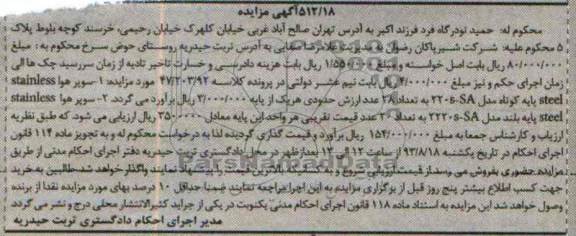 ۵۱۲/۱۸آگهی مزایده
محکوم له: حمید نودرگاه فرد فرزند اکبر به آدرس تهران صالح آباد غربی خیابان کلهرک خیابان رحیمی، خرسند کوچه بلوط پلاک
۵ محکوم علیه: شرکت شیر پاکان رضوی به مدیریت غلامرضا صفایی به آدرس تربت حیدریه روستای حوض سرخ محکوم به: مبلغ
۸۰/۰۰۰/۰۰۰ ریال بابت اصل خواسته و مبلغ ۱/۵۵۰/۰۰۰ ریال بابت هزینه دادرسی و خسارت تاخیر تادیه از زمان سررسید چک ها الی
زمان اجرای حکم و نیز مبلغ ۴/۰۰۰/۰۰۰ ریال بابت نیم عشر دولتی در پرونده کلاسه ۴۷/۲۰۳/۹۲ مورد مزایده: ۱-سوپر هوا stainless
steel پایه کوتاه مدل ۲۲۰s-SA به تعداد ۲۸ عدد ارزش حدودی هریک از پایه ۳/۰۰۰/۰۰۰ ریال برآورد می گردد. ۲-سوپر هوا stainless
steel پایه بلند مدل ۲۲۲۰s-SA به تعداد ۲۰ عدد قیمت تقریبی هر واحد این پایه معادل ۳۵۰۰۰۰۰ ریال ارزیابی می شود، که طبق نظریه
ارزیاب و کارشناس جمعا به مبلغ ۱۵۴/۰۰۰/۰۰۰ ریال برآورد و قیمت گذاری گردیده لذا به درخواست محکوم له و به تجویز ماده ۱۱۴ قانون
اجرای احکام در تاریخ یکشنبه ۹۳/۸/۱۸ از ساعت ۱۲ الی ۱۳ بعدازظهر در محل دادگستری تربت حیدریه دفتر اجرای احکام مدنی از طریق
مزایده حضوری بفروش می رسد از قیمت ارزیابی شروع و به کسانیکه بالاترین قیمت را پیشنهاد نمایند واگذار خواهد شد طالبین به خرید
جهت کسب اطلاع بیشتر پنج روز قبل از برگزاری مزایده به این اجرا مراجعه نمایند ضمنا حداقل ۱۰ درصد بهای مورد مزایده نقدا از برنده
وصول خواهد شد این مزایده به استناد ماده ۱۱۸ قانون اجرای احکام مدنی یکنوبت در یکی از جراید کثیرالانتشار محلی درج و نشر می گردد.
مدیر اجرای احکام دادگستری تربت حیدریه
ParsNamadData